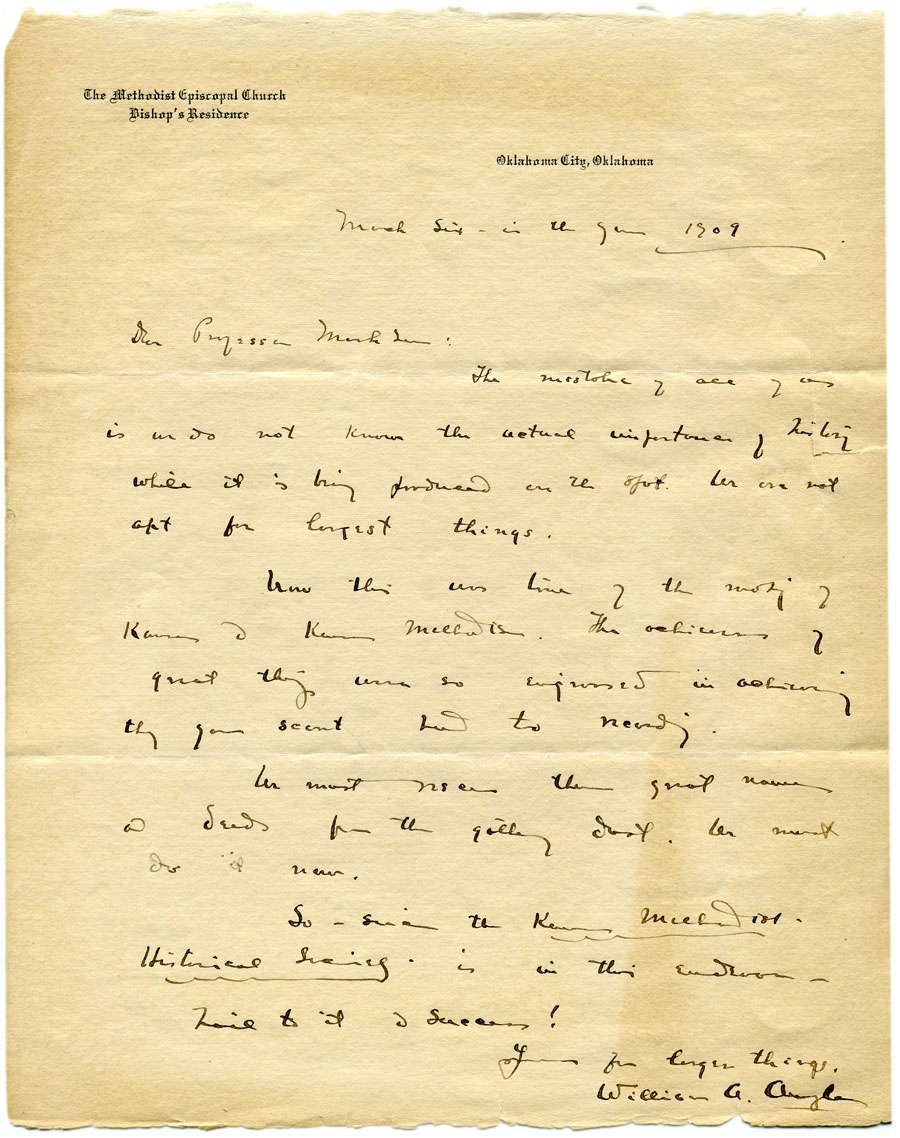 The Methodist Episcopal Church
Bishop's Residence
Oklahoma City, Oklahoma
March Six - in the year 1909
Dear Professor Markham:
The mistake of all of us
is we do not know the actual importance of history
while it is being produced on the spot. We are not
apt for largest things.
Now this was true of the making of
Kansas & Kansas Methodism. The achievers of
great things were so engrossed in achieving
they gave scant heed to recording.
We must rescue these great names
and deeds from the gathering dust. We must
do it now.
So - since the Kansas Methodist -
Historical Society - is in this endeavor -
hail to it & success!
Yours for larger things,
William A.